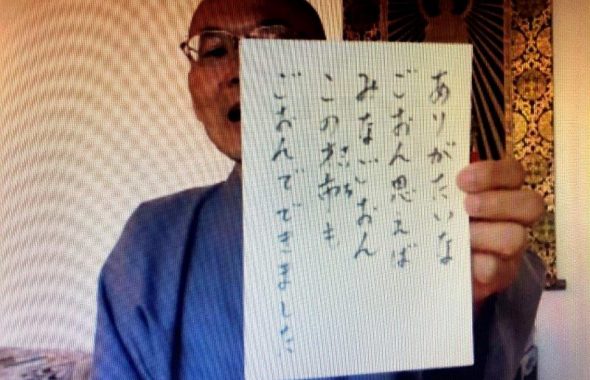 ありがたいな
ごおん思えば
みなごおん
この才市も
さいち
ごおんでできました